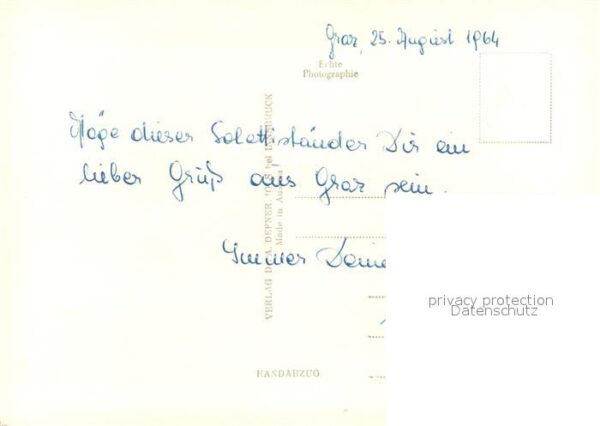 Graz, 25. August 1964
Echte
Photographie
Möge dieser Salettständer Dir ein
lieber Gruß aus Graz sein.
Immer Deine
VERLAG DR. A. DEFNER, IGLS bei INNSBRUCK
Made in Austria
HANDABZUG
privacy protection
Datenschutz